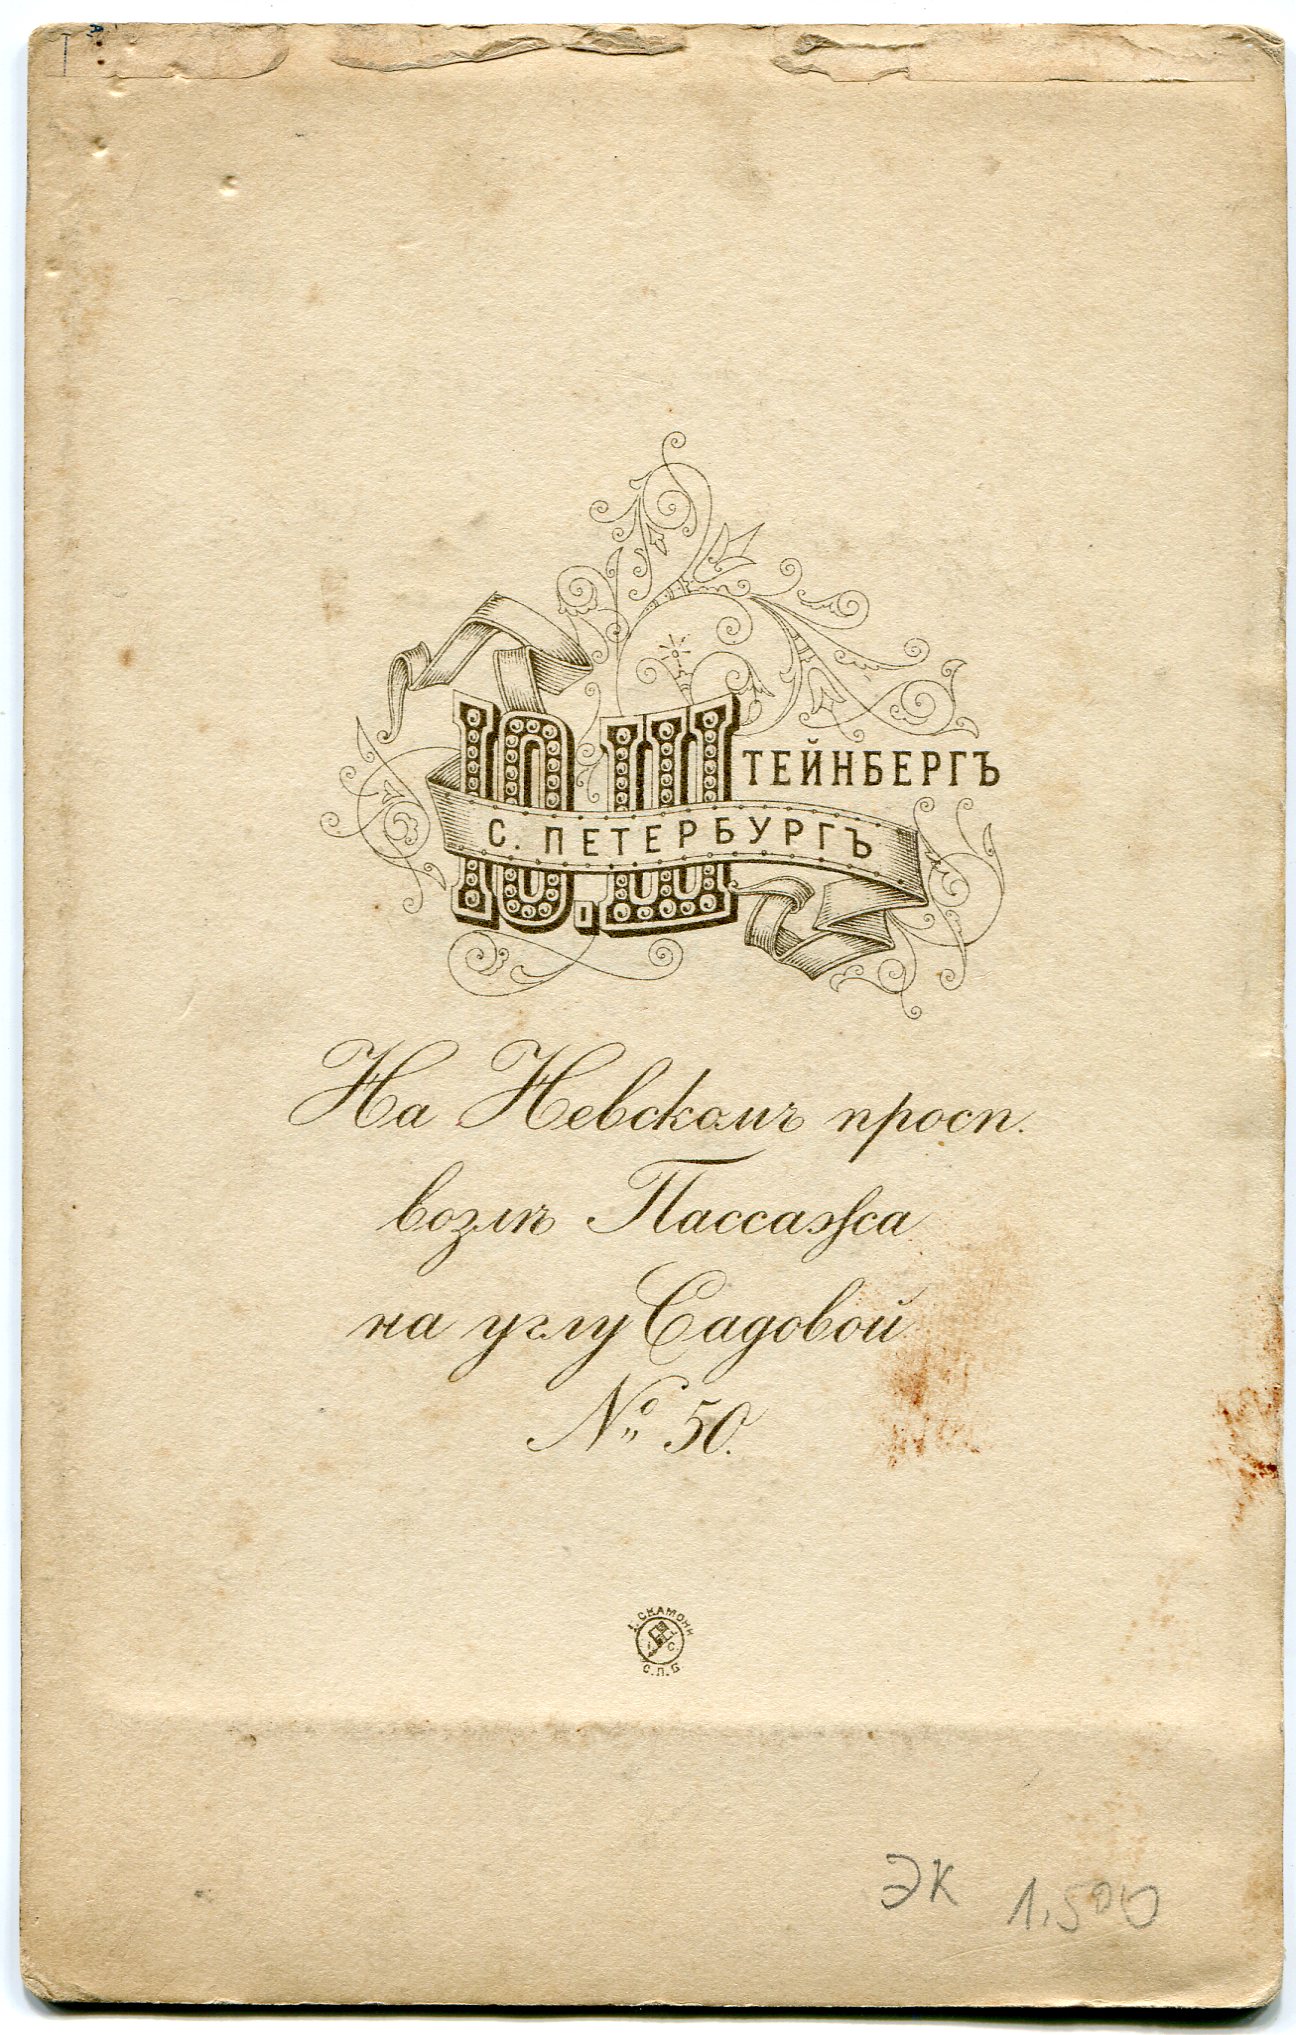 Ю. ШТЕЙНБЕРГЪ
С. ПЕТЕРБУРГЪ
На Невскомъ просп.
возлѣ Пассажа
на углу Садовой
№ 50.
І. СКАМОНИ
С.П.Б
ЭК 1,500